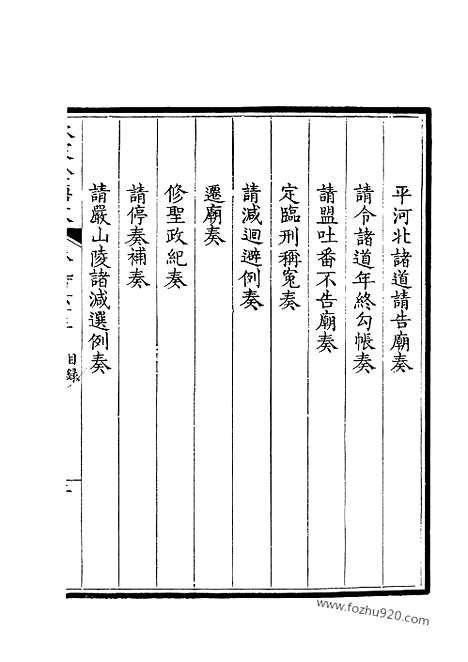 平河北諸道請告廟奏
請令諸道年終勾帳奏
請盟吐番不告廟奏
定臨刑稱寃奏
請減迴避例奏
遷廟奏
修聖政紀奏
請停奏補奏
請嚴山陵諸減選例奏
目錄
www.fozhu920.com